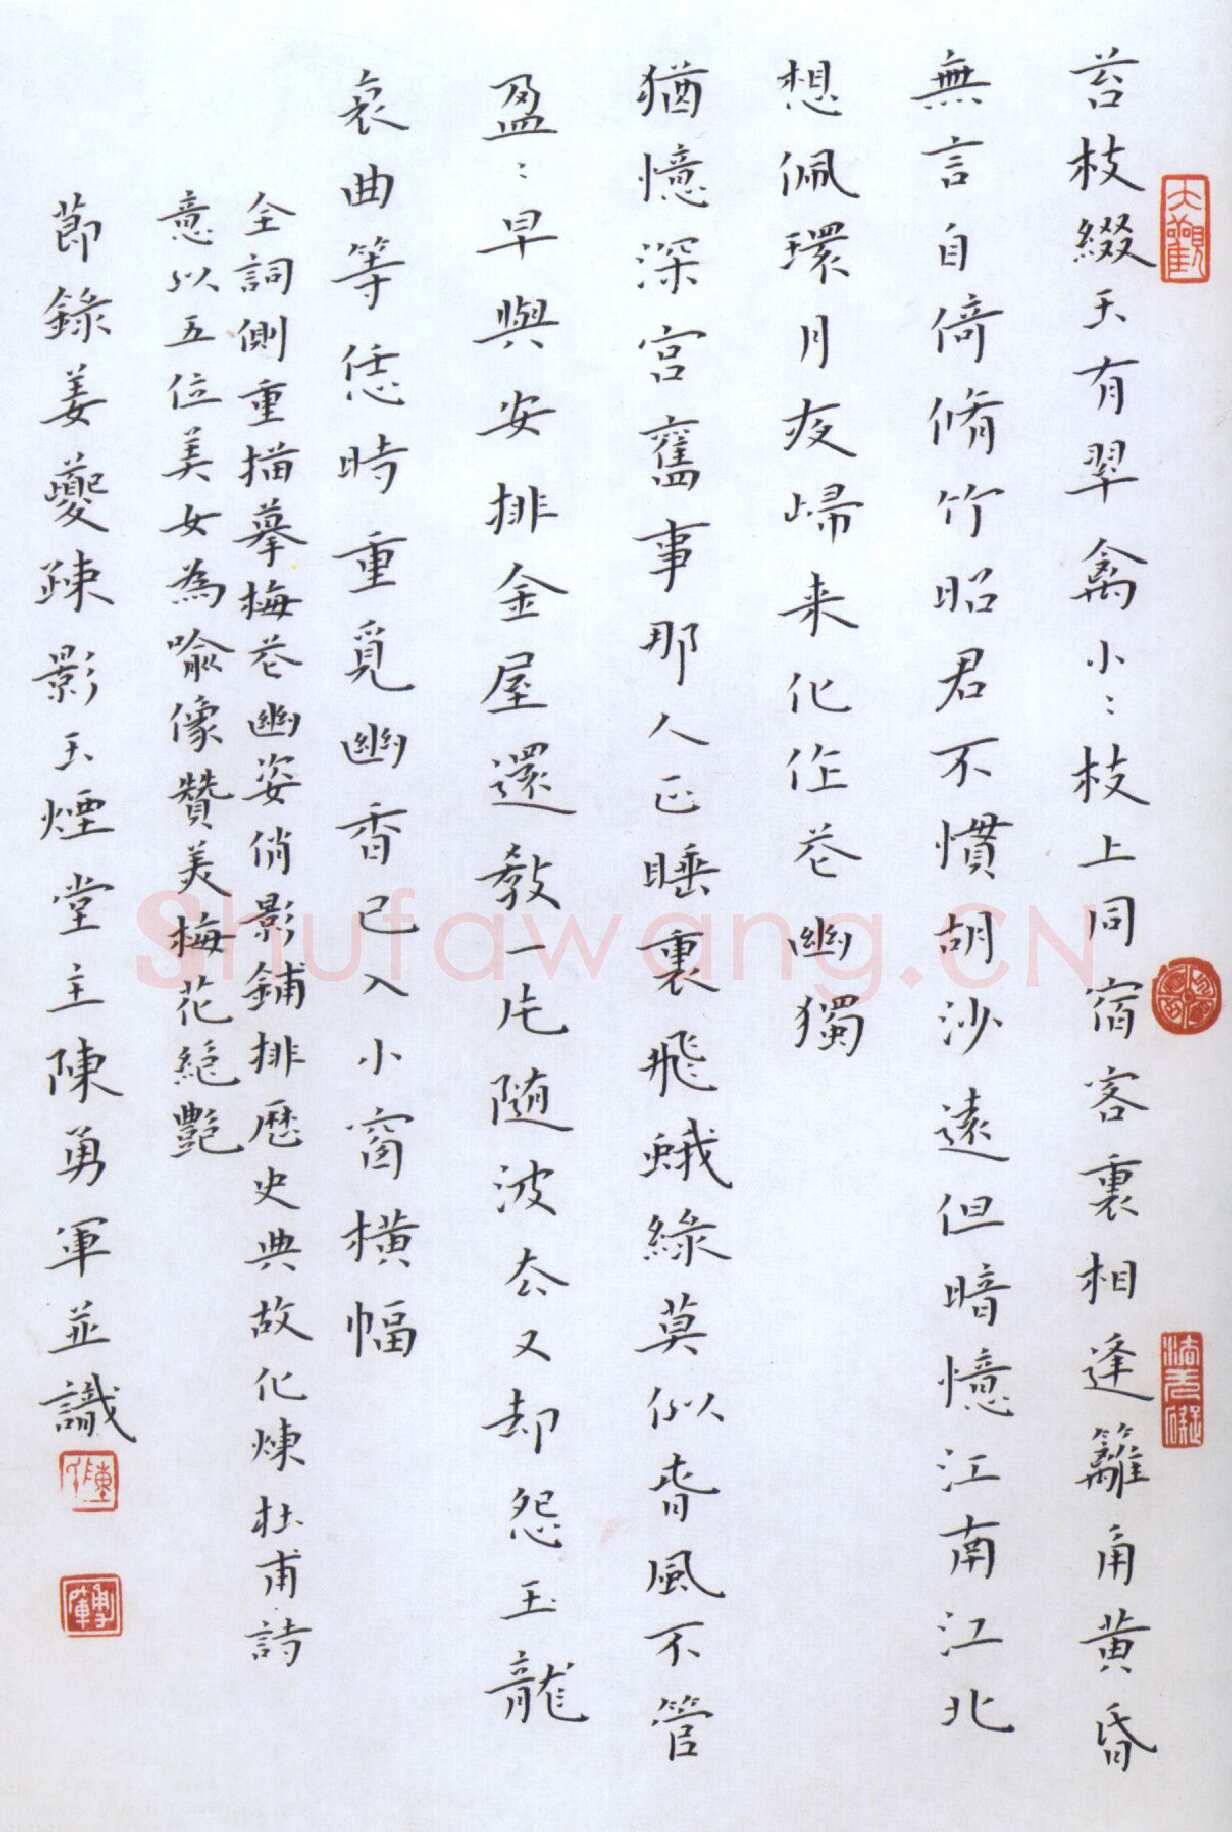 苔枝綴玉有翠禽小〻枝上同宿客裏相逢籬角黄昏
無言自倚脩竹昭君不慣胡沙遠但暗憶江南江北
想佩環月夜歸来化作花幽獨
猶憶深宫舊事那人正睡裏飛蛾綠莫似春風不管
盈〻早與安排金屋還教一片隨波去又却怨玉龍
哀曲等恁時重覓幽香已入小窗橫幅
全詞側重描摹梅花幽姿俏影鋪排歷史典故化煉杜甫詩
意以五位美女為喻像贊美梅花絕艷
節錄姜夔疎影玉煙堂主陳勇軍並識
大觀
陳
勇軍
Shufawang.CN